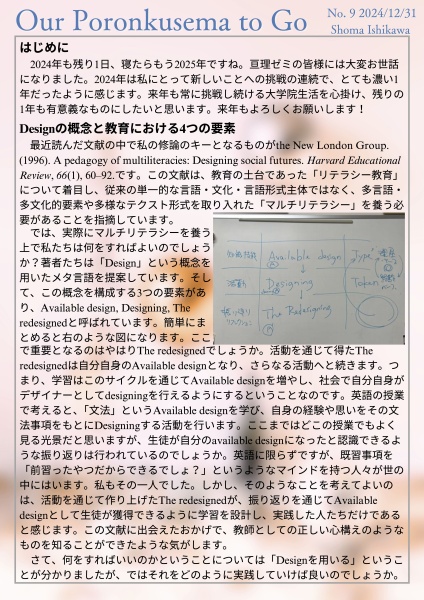 Our Poronkusema to Go
No. 9 2024/12/31
Shoma Ishikawa
はじめに
2024年も残り1日、寝たらもう2025年ですね。亘理ゼミの皆様には大変お世話
になりました。2024年は私にとって新しいことへの挑戦の連続で、とても濃い1
年だったように感じます。来年も常に挑戦し続ける大学院生活を心掛け、残りの
1年も有意義なものにしたいと思います。来年もよろしくお願いします！
Designの概念と教育における4つの要素
最近読んだ文献の中で私の修論のキーとなるものがthe New London Group.
(1996). A pedagogy of multiliteracies: Designing social futures. Harvard Educational
Review, 66(1), 60–92.です。この文献は、教育の土台であった「リテラシー教育」
について着目し、従来の単一的な言語・文化・言語形式主体ではなく、多言語・
多文化的要素や多様なテクスト形式を取り入れた「マルチリテラシー」を養う必
要があることを指摘しています。
では、実際にマルチリテラシーを養う
上で私たちは何をすればよいのでしょう
か？著者たちは「Design」という概念を
用いたメタ言語を提案しています。そし
て、この概念を構成する3つの要素があ
り、Available design, Designing, The
redesignedと呼ばれています。簡単にま
とめると右のような図になります。ここ
Available design
Type
活動
Designing
Token
振り返り
The Redesigning
で重要となるのはやはりThe redesignedでしょうか。活動を通じて得たThe
redesignedは自分自身のAvailable designとなり、さらなる活動へと続きます。つ
まり、学習はこのサイクルを通じてAvailable designを増やし、社会で自分自身が
デザイナーとしてdesigningを行えるようにするということなのです。英語の授業
で考えると、「文法」というAvailable designを学び、自身の経験や思いをその文
法事項をもとにDesigningする活動を行います。ここまではどこの授業でもよく
見る光景だと思いますが、生徒が自分のavailable designになったと認識できるよ
うな振り返りは行われているのでしょうか。英語に限らずですが、既習事項を
「前習ったやつだからできるでしょ？」というようなマインドを持つ人々が世の
中にはいます。私もその一人でした。しかし、そのようなことを考えてよいの
は、活動を通じて作り上げたThe redesignedが、振り返りを通じてAvailable
designとして生徒が獲得できるように学習を設計し、実践した人たちだけである
と感じます。この文献に出会えたおかげで、教師としての正しい心構えのような
ものを知ることができたような気がします。
さて、何をすればいいのかということについては「Designを用いる」というこ
とが分かりましたが、ではそれをどのように実践していけば良いのでしょうか。